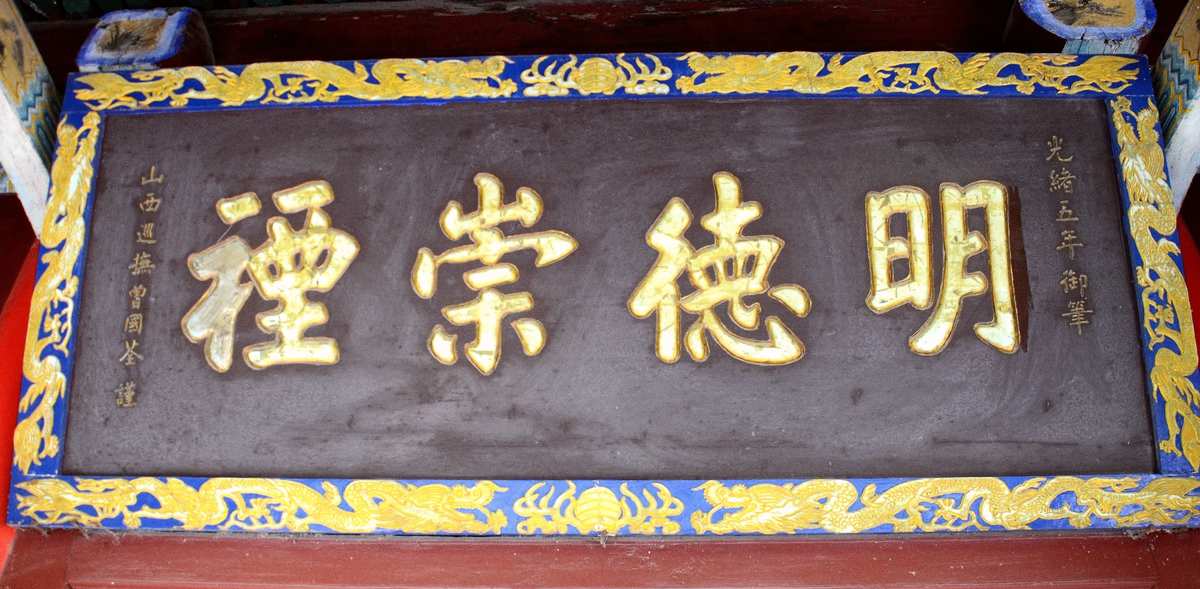 光緒五年御筆
明德崇禋
山西巡撫曾國荃謹